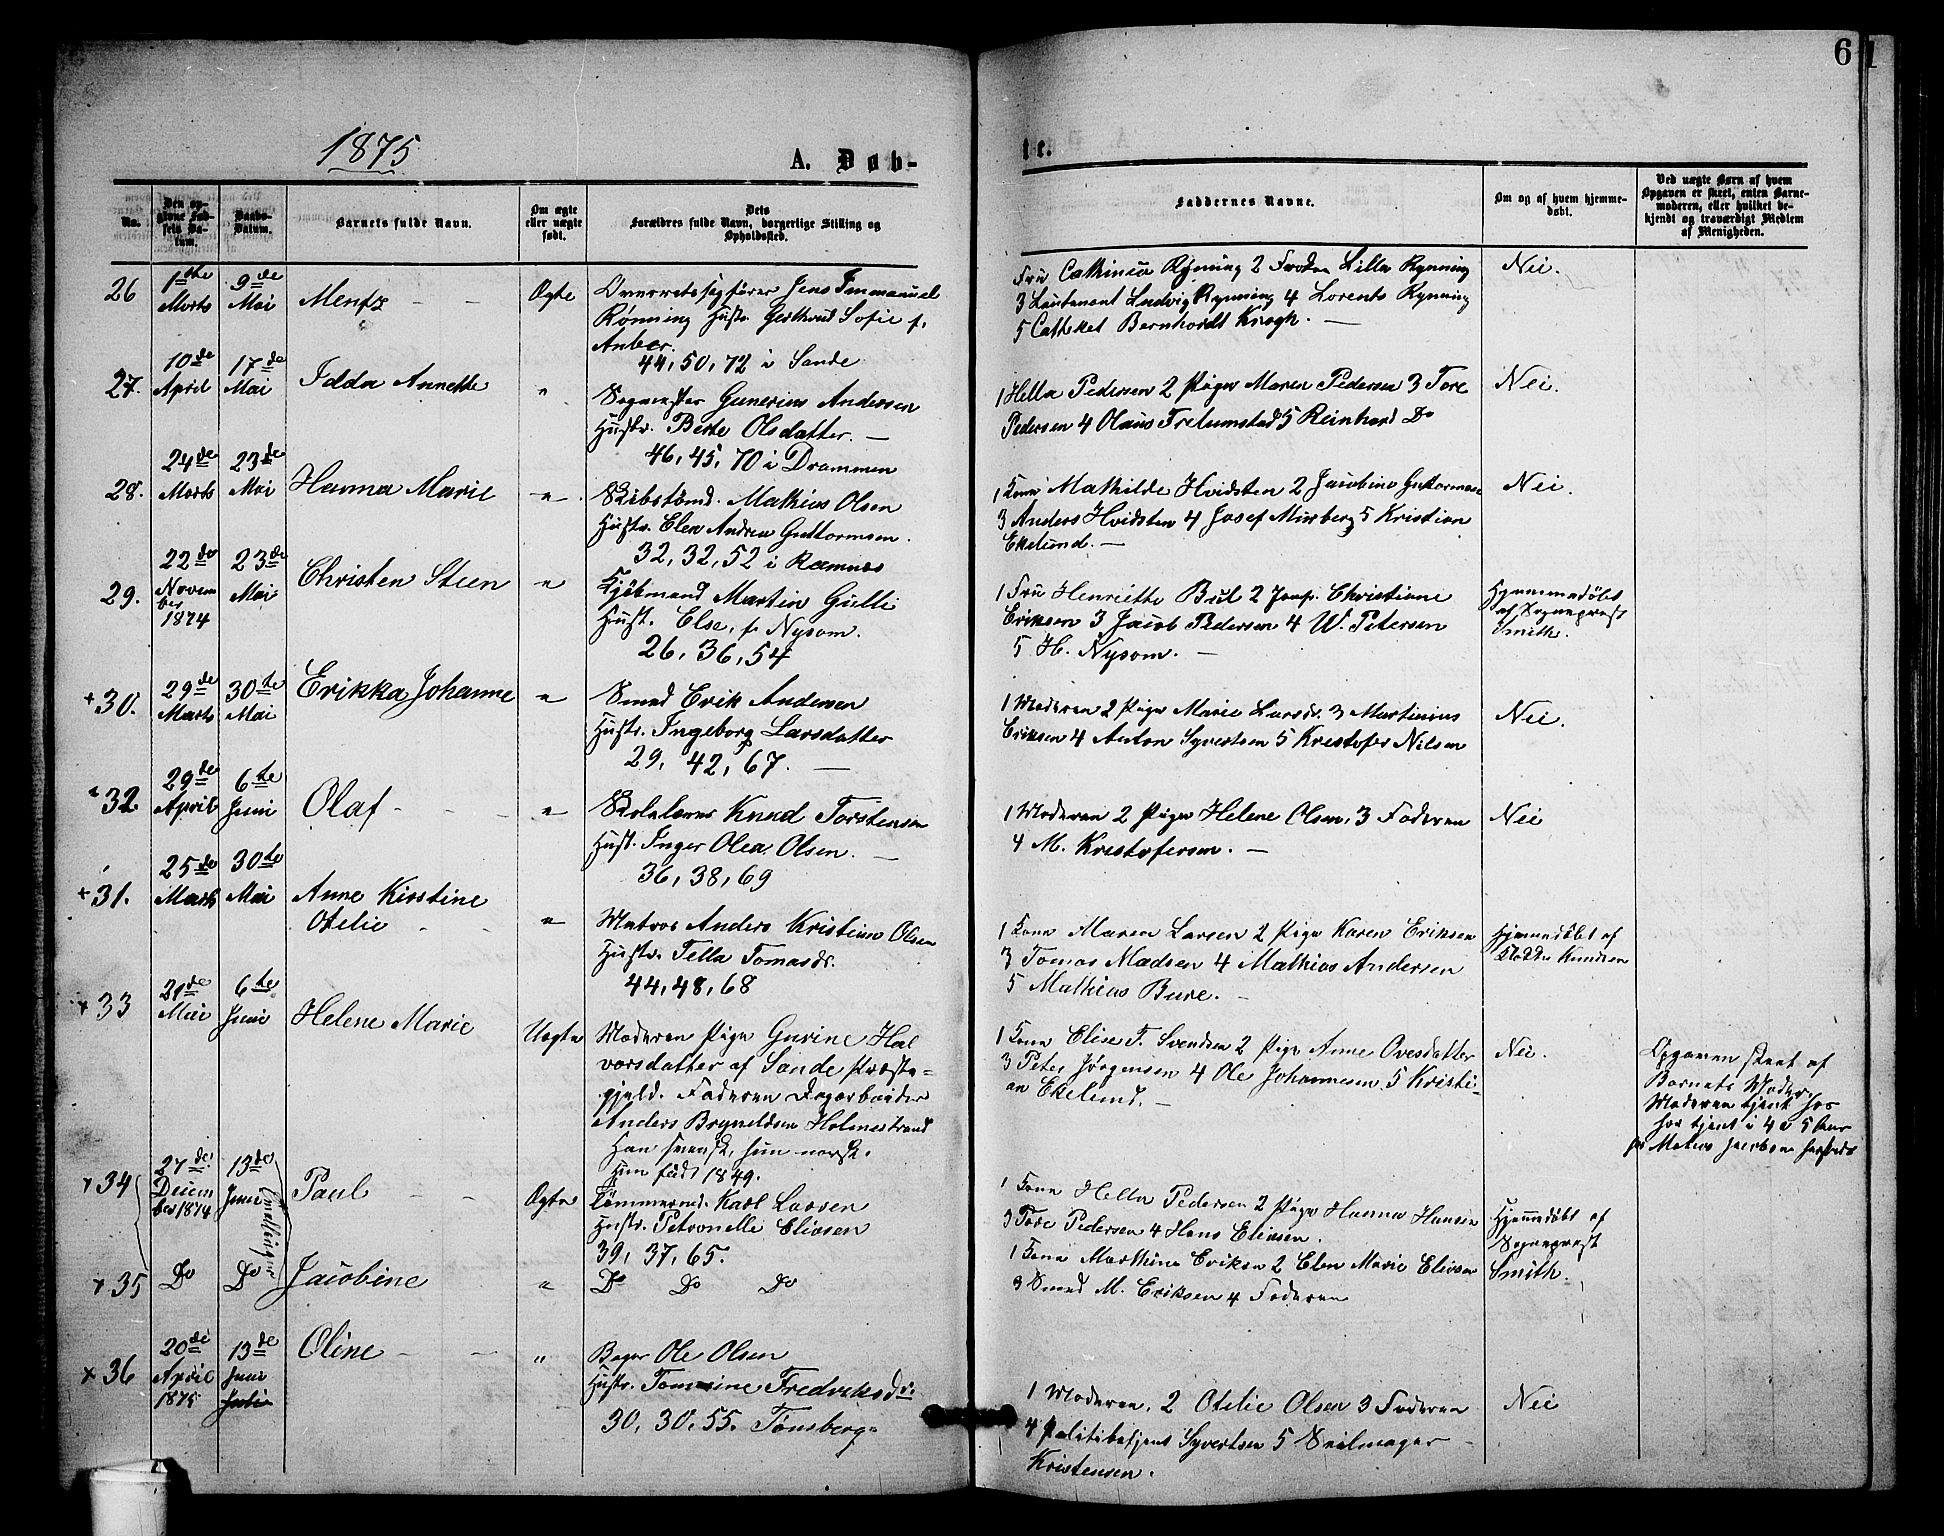 6
1
1875
A. Døb-
te.
No.
Den op-
givne Fød-
sels Da-
tum.
Daabs-
Datum.
Barnets fulde Navn.
Om ægte
eller uægte
født.
Dets
Forældres fulde Navn, borgerlige Stilling og
Opholdssted.
Faddernes Navne.
Om og af hvem hjemme-
døbt.
Ved uægte Børn af hvem
Opgaven er skeet, enten Barne-
moderen, eller hvilket be-
kjendt og troværdigt Medlem
af Menigheden.
26
1ste
Marts
9de
Mai
Mentz - -
Ægte
Overretssagfører Jens Emmanuel
Rønning Hustr. Gerthrud Sofie f.
44, 50, 72 i Sande
Fru Cathinca Rynning 2 Lilla Rynning
3 Lieutenant Ludvig Rynning 4 Lorents Rynning
5 Catheket Bernhardt Kragh. -
Nei.
27.
10de
April
17de
Mai
Idda Annette
"
Gunerius Andersen
Hustr. Berte Olsdatter. -
46, 45, 70 i Drammen
1 Hella Pedersen 2 Pige Maren Pedersen 3 Tore
Pedersen 4 Olaus 5 Reinhard Do
Nei.
28.
24de
Marts
23de
Mai
Hanna Marie
"
Skibstømd. Mathias Olsen
Hustr. Elen Andrea Guttormsen.
32, 32, 52 i Ramnes
1 Kone Mathilde Hvidsten 2 Jacobine Guttormsen
3 Anders Hvidsten 4 Josef 5 Kristian
Ekelund. -
Nei.
29.
22de
Novem
ber
1874
23de
Mai
Christen Steen
"
Kjøbmand Martin Gulli
Hust. Else, f. Nysom.
26, 36, 54
1 Fru Henriette Bul 2 Jomf. Christiane
Eriksen 3 Jacob Pedersen 4 W. Petersen
5 H. Nysom. -
Hjemmedøbt
af Sogneprest
Smith.
+30.
29de
Marts
30te
Mai
Erikka Johanne
"
Smed Erik Andersen
Hustr. Ingeborg Larsdatter
29, 42, 67. -
1 Moderen 2 Pige Marie Larsd. 3 Martinius
Eriksen 4 Anton Syvertsen 5 Kristofer Nilsen
Nei.
32.
29de
April
6te
Juni
Olaf - - -
"
Skolelærer Knud Torstensen
Hust. Inger Olea Olsen. -
36, 38, 69
1 Moderen 2 Pige Helene Olsen, 3 Faderen
4 M. Kristofersen. -
Nei
+31.
25de
Marts
30te
Mai
Anne Kirstine
Otelie - -
"
Matros Anders Kristian Olsen
Hustr. Tella Tomasdr.
44, 48, 68
1 Kone Maren Larsen 2 Pige Karen Eriksen
3 Tomas Madsen 4 Mathias Andersen
5 Mathias Bure. -
Hjemmedøbt af
Knudsen
x 33
Mai
6te
Juni
Helene Marie
Uægte
Moderen Pige Gurine Hal
vorsdatter af Sande Præste-
gjeld. Faderen Dagarbeider
Anders Bryneldsen Holmestrand
Han svensk, hun norsk.
Hun født 1849.
1 Kone Elise F. Svendsen 2 Pige Anne Ovesdatter
3 Peter Jørgensen 4 Ole Johannesen, 5 Kristi-
an Ekelund. -
Nei.
Opgaven skeet af
Barnets Moder.
Moderen tjent hos
tjent i 4 a 5 Aar
x 34
27de
Decem
ber 1874
13de
Juni
(Tvillinger)
Paul - -
Ægte
Tømmermd. Karl Larsen
Hustr. Petronelle Eliasen
39, 37, 65.
1 Kone Hella Pedersen 2 Pige Hanna Hansen
3 Tore Pedersen 4 Hans Eliasen.
Hjemmedøbt af
Sogneprest
Smith.
x 35
Do
Do
Jacobine
"
Do Do Do
1 Kone Marthine Eriksen 2 Elen Marie Eliasen
3 Smed M. Eriksen 4 Faderen
x 36
20de
April
1875
13de
Juni
Juli
Oline - -
"
Bager Ole Olsen
Hustr. Tomine Fredriksdr.
30, 30, 55. Tønsberg.
1 Moderen, 2 Otelie Olsen 3 Faderen
4 Politibetjent Syvertsen 5 Seilmager
Kristensen.
Nei